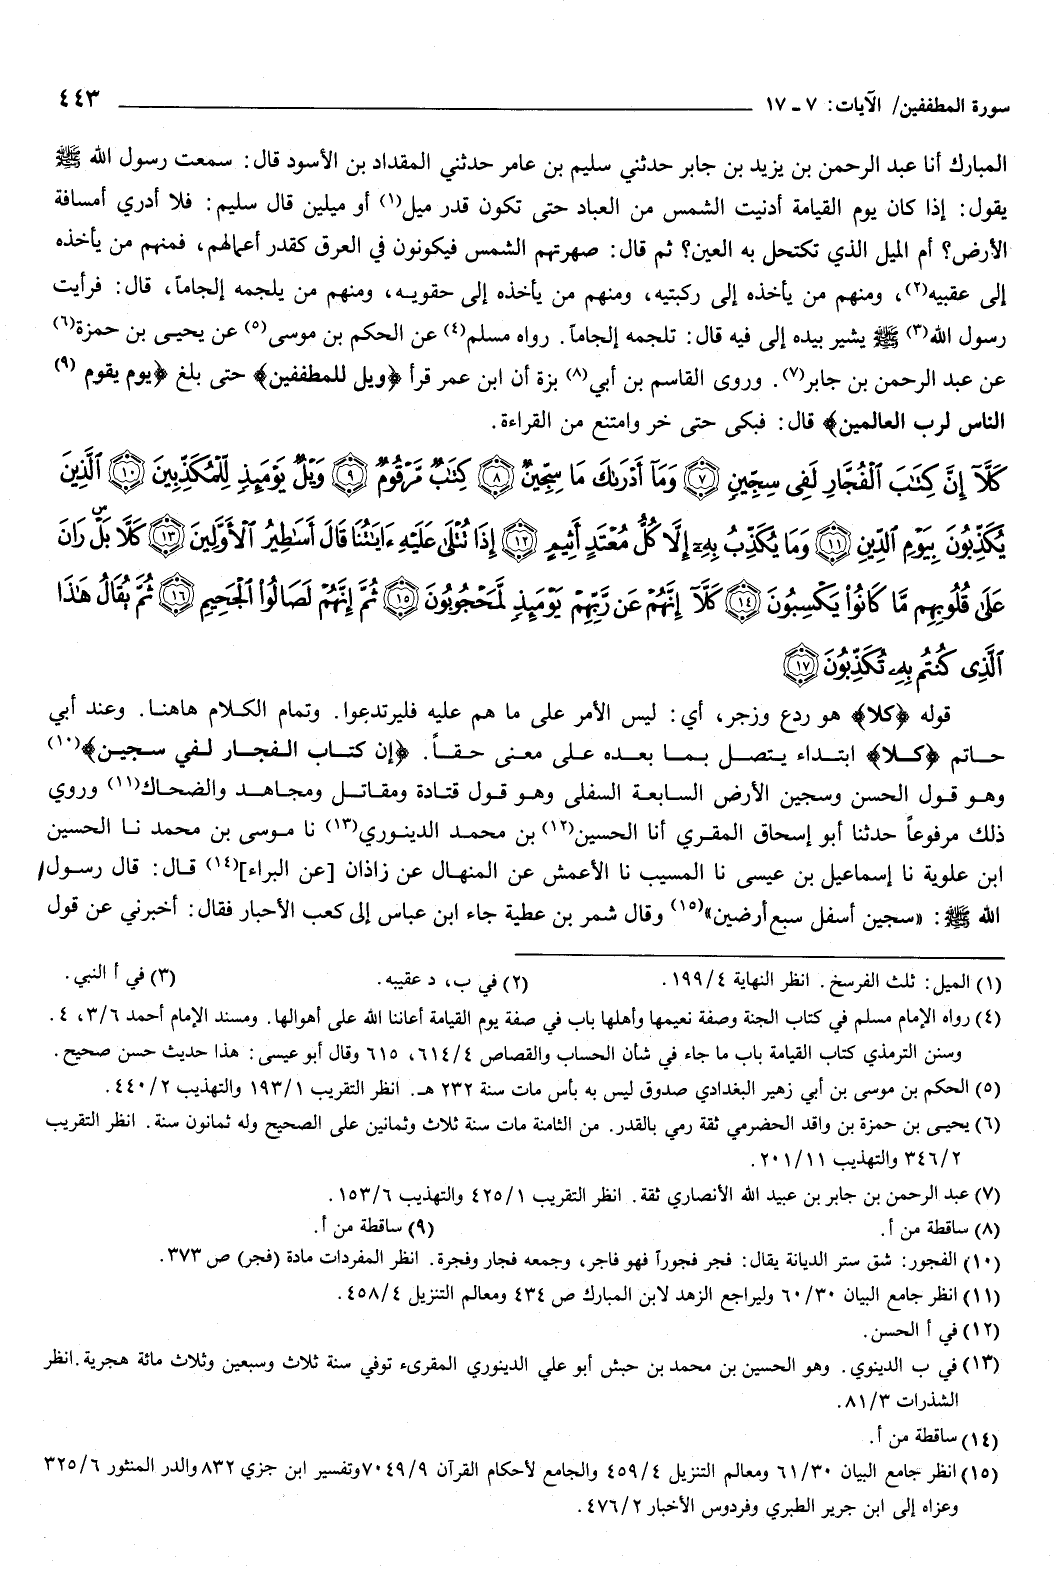 سورة المطففين/ الآيات: ٧ ـ ١٧ ٤٤٣
المبارك أنا عبد الرحمن بن يزيد بن جابر حدثني سليم بن عامر حدثني المقداد بن الأسود قال: سمعت رسول الله ﷺ
يقول: إذا كان يوم القيامة أدنيت الشمس من العباد حتى تكون قدر ميل(١) أو ميلين قال سليم: فلا أدري أمسافة
الأرض؟ أم الميل الذي تكتحل به العين؟ ثم قال: صهرتهم الشمس فيكونون في العرق كقدر أعمالهم، فمنهم من يأخذه
إلى عقبيه(٢)، ومنهم من يأخذه إلى ركبتيه، ومنهم من يأخذه إلى حقويه، ومنهم من يلجمه إلجاماً، قال: فرأيت
رسول الله(٣) ﷺ يشير بيده إلى فيه قال: تلجمه إلجاماً. رواه مسلم(٤) عن الحكم بن موسى(٥) عن يحيى بن حمزة(٦)
عن عبد الرحمن بن جابر(٧). وروى القاسم بن أبي(٨) بزة أن ابن عمر قرأ ﴿ويل للمطففين﴾ حتى بلغ ﴿يوم يقوم (٩)
الناس لرب العالمين﴾ قال: فبكى حتى خر وامتنع من القراءة.
كَلَّآ إِنَّ كِتَٰبَ ٱلْفُجَّارِ لَفِى سِجِّينٍ ٧ وَمَآ أَدْرَىٰكَ مَا سِجِّينٌ ٨ كِتَٰبٌ مَّرْقُومٌ ٩ وَيْلٌ يَوْمَئِذٍ لِّلْمُكَذِّبِينَ ١٠ ٱلَّذِينَ
يُكَذِّبُونَ بِيَوْمِ ٱلدِّينِ ١١ وَمَا يُكَذِّبُ بِهِۦٓ إِلَّا كُلُّ مُعْتَدٍ أَثِيمٍ ١٢ إِذَا تُتْلَىٰ عَلَيْهِ ءَايَٰتُنَا قَالَ أَسَٰطِيرُ ٱلْأَوَّلِينَ ١٣ كَلَّا بَلْ رَانَ
عَلَىٰ قُلُوبِهِم مَّا كَانُوا۟ يَكْسِبُونَ ١٤ كَلَّآ إِنَّهُمْ عَن رَّبِّهِمْ يَوْمَئِذٍ لَّمَحْجُوبُونَ ١٥ ثُمَّ إِنَّهُمْ لَصَالُوا۟ ٱلْجَحِيمِ ١٦ ثُمَّ يُقَالُ هَٰذَا
ٱلَّذِى كُنتُم بِهِۦ تُكَذِّبُونَ ١٧
قوله ﴿كلا﴾ هو ردع وزجر، أي: ليس الأمر على ما هم عليه فليرتدعوا. وتمام الكلام هاهنا. وعند أبي
حاتم ﴿كلا﴾ ابتداء يتصل بما بعده على معنى حقاً. ﴿إن كتاب الفجار لفي سجين﴾(١٠)
وهو قول الحسن وسجين الأرض السابعة السفلى وهو قول قتادة ومقاتل ومجاهد والضحاك(١١) وروي
ذلك مرفوعاً حدثنا أبو إسحاق المقري أنا الحسين(١٢) بن محمد الدينوري(١٣) نا موسى بن محمد نا الحسين
ابن علوية نا إسماعيل بن عيسى نا المسيب نا الأعمش عن المنهال عن زاذان [عن البراء](١٤) قال: قال رسول/
الله ﷺ: «سجين أسفل سبع أرضين»(١٥) وقال شمر بن عطية جاء ابن عباس إلى كعب الأحبار فقال: أخبرني عن قول
(١) الميل: ثلث الفرسخ. انظر النهاية ٤/١٩٩. (٢) في ب، د عقيبه. (٣) في أ النبي.
(٤) رواه الإمام مسلم في كتاب الجنة وصفة نعيمها وأهلها باب في صفة يوم القيامة أعاننا الله على أهوالها. ومسند الإمام أحمد ٦/٣، ٤.
وسنن الترمذي كتاب القيامة باب ما جاء في شأن الحساب والقصاص ٤/٦١٤، ٦١٥ وقال أبو عيسى: هذا حديث حسن صحيح.
(٥) الحكم بن موسى بن أبي زهير البغدادي صدوق ليس به بأس مات سنة ٢٣٢ هـ. انظر التقريب ١/١٩٣ والتهذيب ٢/٤٤٠.
(٦) يحيى بن حمزة بن واقد الحضرمي ثقة رمي بالقدر. من الثامنة مات سنة ثلاث وثمانين على الصحيح وله ثمانون سنة. انظر التقريب
٢/٣٤٦ والتهذيب ١١/٢٠١.
(٧) عبد الرحمن بن جابر بن عبيد الله الأنصاري ثقة. انظر التقريب ١/٤٢٥ والتهذيب ٦/١٥٣.
(٨) ساقطة من أ. (٩) ساقطة من أ.
(١٠) الفجور: شق ستر الديانة يقال: فجر فجوراً فهو فاجر، وجمعه فجار وفجرة. انظر المفردات مادة (فجر) ص ٣٧٣.
(١١) انظر جامع البيان ٣٠/٦٠ وليراجع الزهد لابن المبارك ص ٤٣٤ ومعالم التنزيل ٤/٤٥٨.
(١٢) في أ الحسن.
(١٣) في ب الدينوي. وهو الحسين بن محمد بن حبش أبو علي الدينوري المقرىء توفي سنة ثلاث وسبعين وثلاث مائة هجرية. انظر
الشذرات ٣/٨١.
(١٤) ساقطة من أ.
(١٥) انظر جامع البيان ٣٠/٦١ ومعالم التنزيل ٤/٤٥٩ والجامع لأحكام القرآن ٩/٧٠٤٩ وتفسير ابن جزي ٨٣٢ والدر المنثور ٦/٣٢٥
وعزاه إلى ابن جرير الطبري وفردوس الأخبار ٢/٤٧٦.